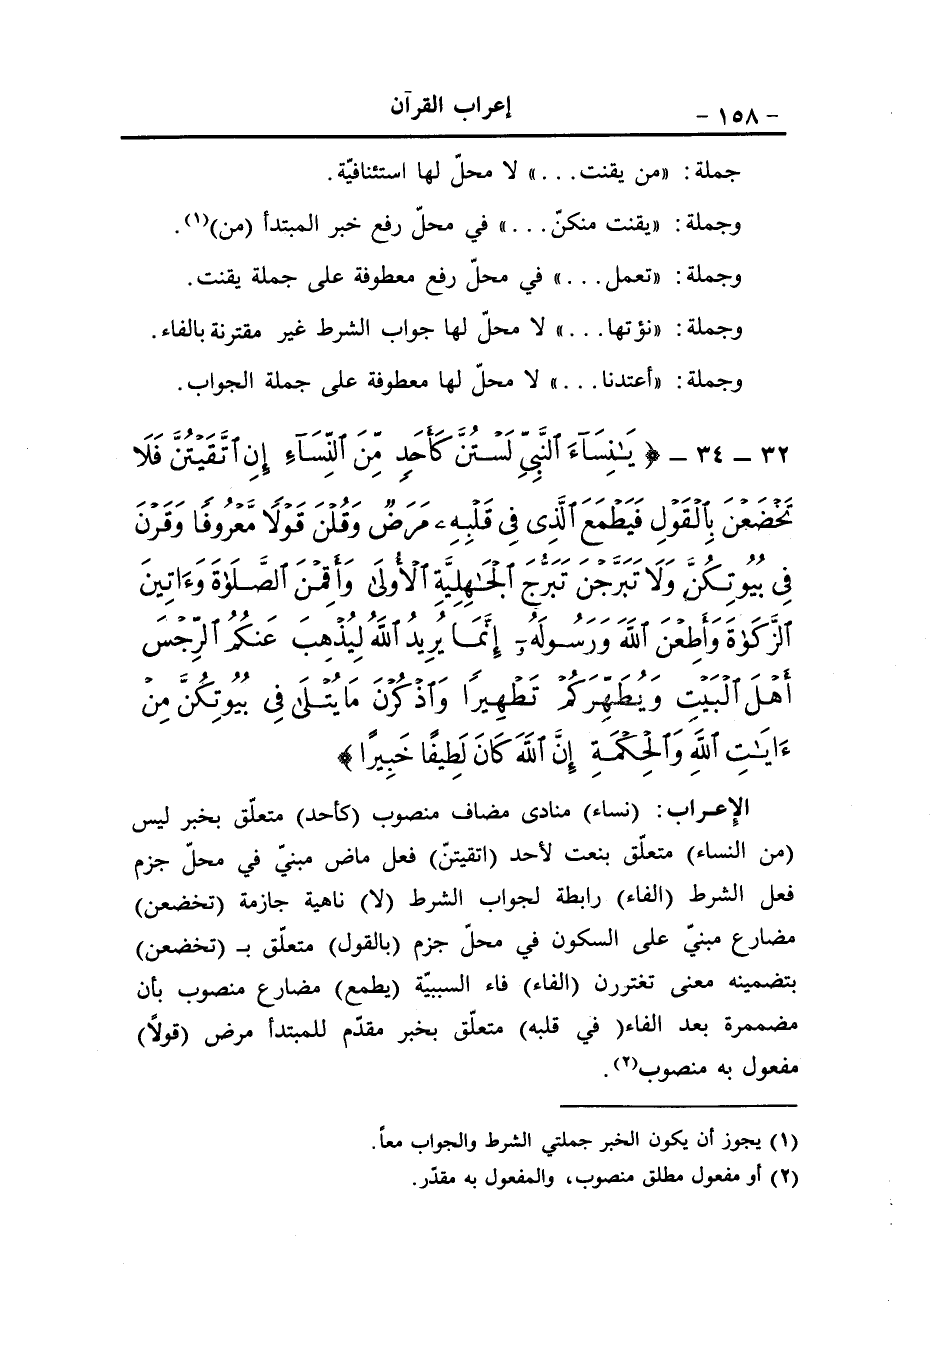 - ١٥٨ - إعراب القرآن
جملة: «من يقنت. . .» لا محلّ لها استئنافيّة.
وجملة: «يقنت منكنّ. . .» في محلّ رفع خبر المبتدأ (من)(١).
وجملة: «تعمل. . .» في محلّ رفع معطوفة على جملة يقنت.
وجملة: «نؤتها. . .» لا محلّ لها جواب الشرط غير مقترنة بالفاء.
وجملة: «أعتدنا. . .» لا محلّ لها معطوفة على جملة الجواب.
٣٢ - ٣٤ - ﴿ يَـٰنِسَآءَ ٱلنَّبِيِّ لَسْتُنَّ كَأَحَدٍ مِّنَ ٱلنِّسَآءِ إِنِ ٱتَّقَيْتُنَّ فَلَا
تَخْضَعْنَ بِٱلْقَوْلِ فَيَطْمَعَ ٱلَّذِى فِى قَلْبِهِۦ مَرَضٌ وَقُلْنَ قَوْلًا مَّعْرُوفًا وَقَرْنَ
فِى بُيُوتِكُنَّ وَلَا تَبَرَّجْنَ تَبَرُّجَ ٱلْجَـٰهِلِيَّةِ ٱلْأُولَىٰ وَأَقِمْنَ ٱلصَّلَوٰةَ وَءَاتِينَ
ٱلزَّكَوٰةَ وَأَطِعْنَ ٱللَّهَ وَرَسُولَهُۥٓ إِنَّمَا يُرِيدُ ٱللَّهُ لِيُذْهِبَ عَنكُمُ ٱلرِّجْسَ
أَهْلَ ٱلْبَيْتِ وَيُطَهِّرَكُمْ تَطْهِيرًا وَٱذْكُرْنَ مَا يُتْلَىٰ فِى بُيُوتِكُنَّ مِنْ
ءَايَـٰتِ ٱللَّهِ وَٱلْحِكْمَةِ إِنَّ ٱللَّهَ كَانَ لَطِيفًا خَبِيرًا ﴾
الإعراب: (نساء) منادى مضاف منصوب (كأحد) متعلّق بخبر ليس
(من النساء) متعلّق بنعت لأحد (اتقيتنّ) فعل ماض مبنيّ في محلّ جزم
فعل الشرط (الفاء) رابطة لجواب الشرط (لا) ناهية جازمة (تخضعن)
مضارع مبنيّ على السكون في محلّ جزم (بالقول) متعلّق بـ (تخضعن)
بتضمينه معنى تغتررن (الفاء) فاء السببيّة (يطمع) مضارع منصوب بأن
مضممرة بعد الفاء( في قلبه) متعلّق بخبر مقدّم للمبتدأ مرض (قولاً)
مفعول به منصوب(٢).
(١) يجوز أن يكون الخبر جملتي الشرط والجواب معاً.
(٢) أو مفعول مطلق منصوب، والمفعول به مقدّر.